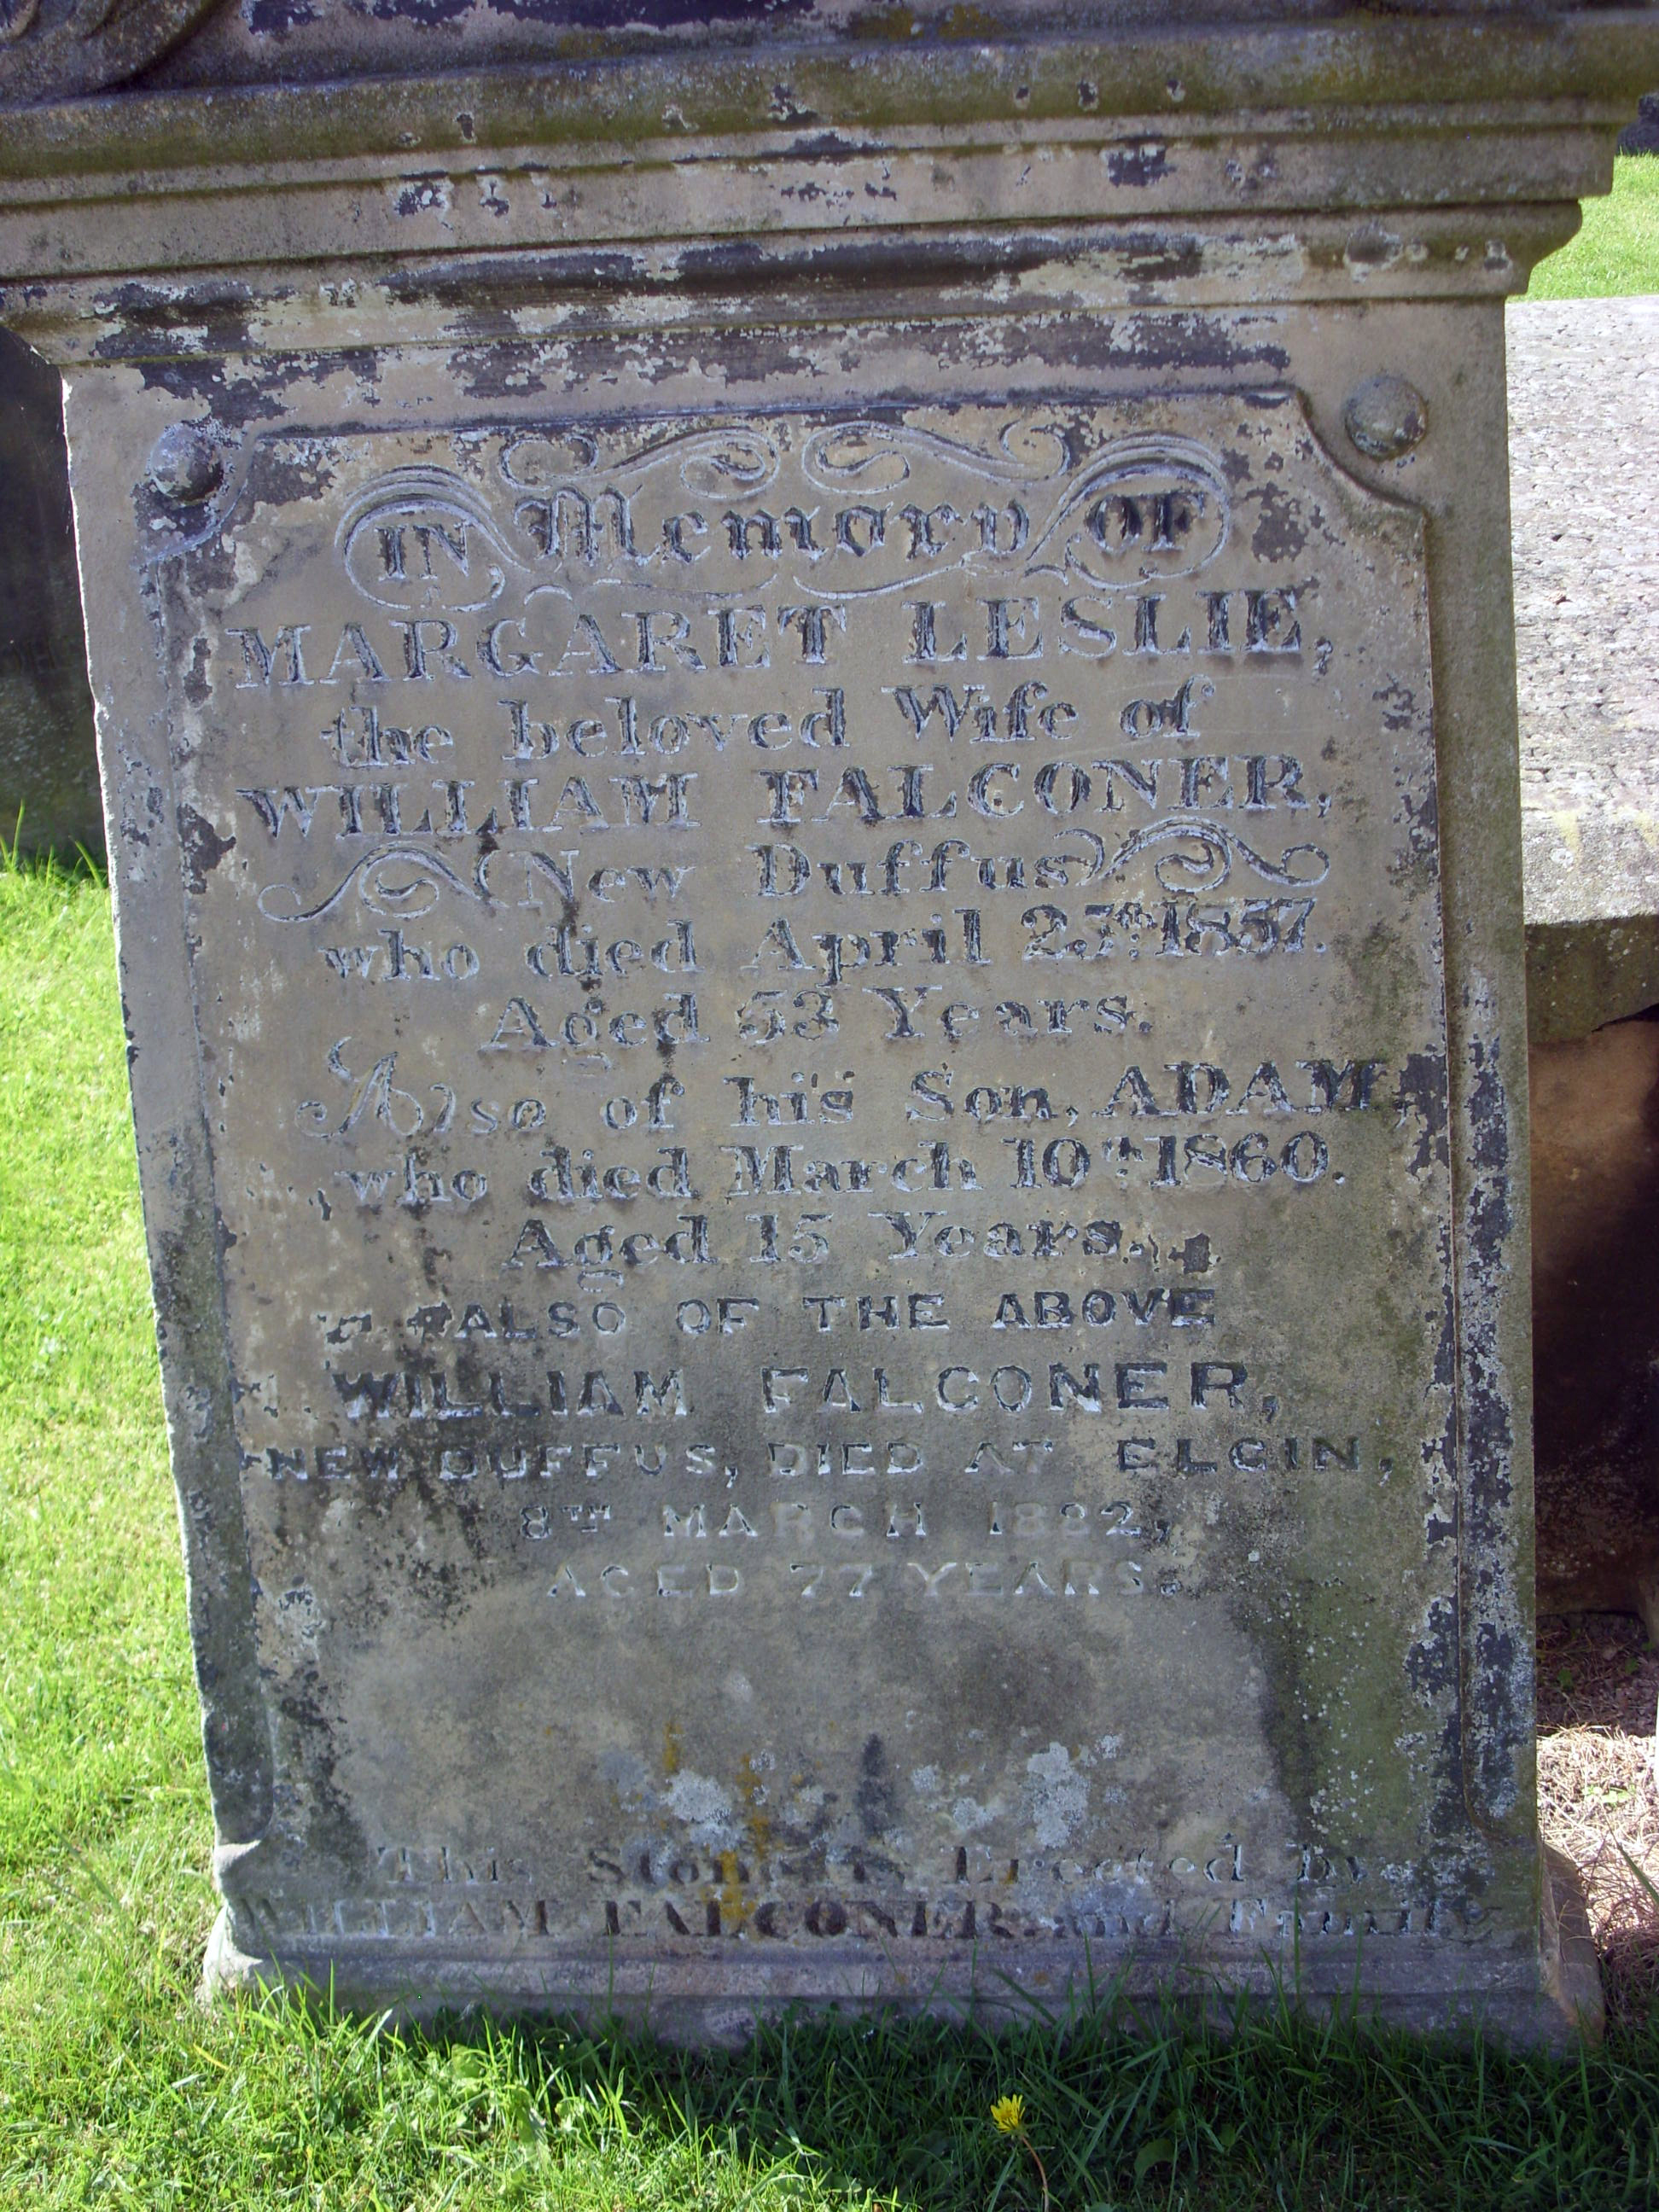 IN Memory OF
MARGARET LESLIE,
the beloved Wife of
WILLIAM FALCONER,
New Duffus
who died April 25th 1857.
Aged 53 Years.
Also of his Son, ADAM,
who died March 10th 1860.
Aged 15 Years.
ALSO OF THE ABOVE
WILLIAM FALCONER,
NEW DUFFUS, DIED AT ELGIN,
8TH MARCH 1882,
AGED 77 YEARS.
This Stone is Erected by
WILLIAM FALCONER and Family